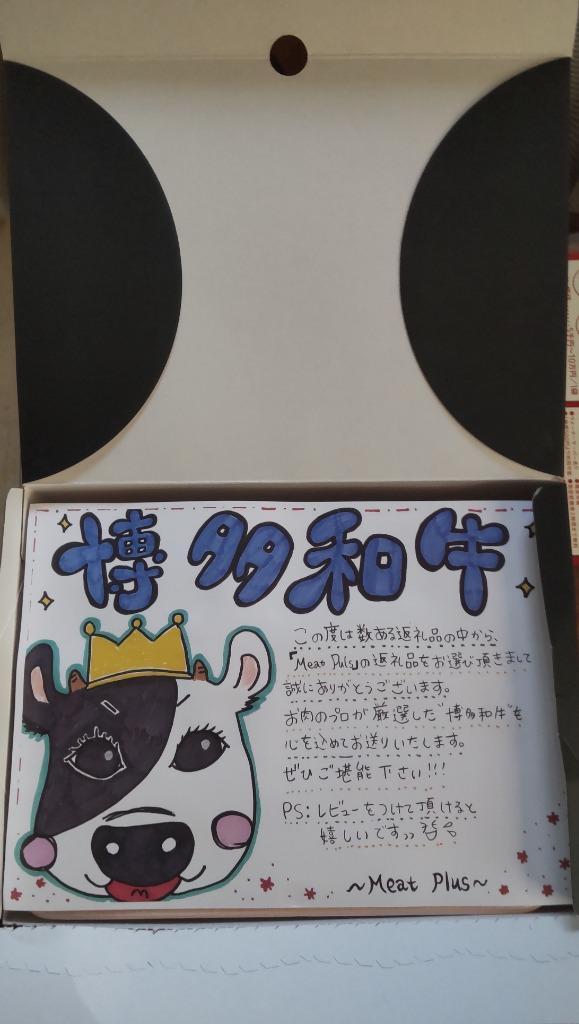 博多和牛
この度は数ある返礼品の中から、
「Meat Puls」の返礼品をお選び頂きまして
誠にありがとうございます。
お肉のプロが厳選した"博多和牛"を
心を込めてお送りいたします。
ぜひご堪能下さい!!!
PS:レビューをつけて頂けると
嬉しいです
~Meat Plus~